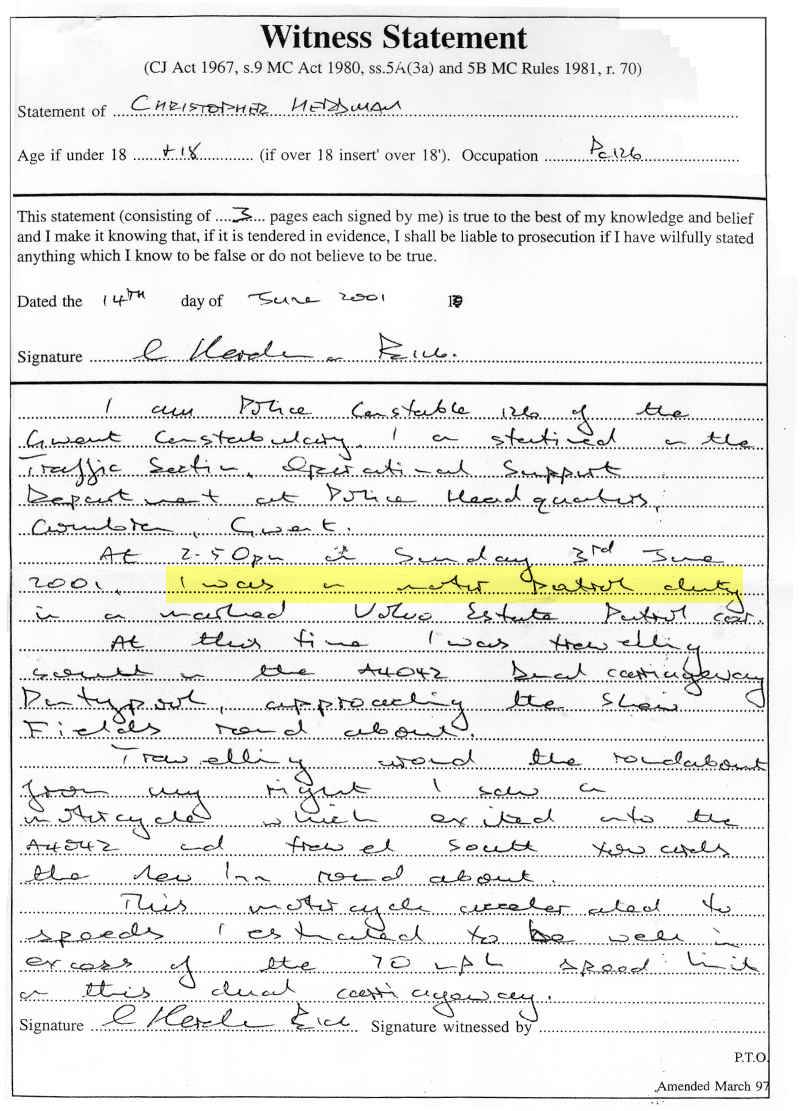 Witness Statement
(CJ Act 1967, s.9 MC Act 1980, ss.5A(3a) and 5B MC Rules 1981, r. 70)
Statement of CHRISTOPHER HERDMAN
Age if under 18 +18 (if over 18 insert' over 18'). Occupation Pc126
This statement (consisting of 3 pages each signed by me) is true to the best of my knowledge and belief
and I make it knowing that, if it is tendered in evidence, I shall be liable to prosecution if I have wilfully stated
anything which I know to be false or do not believe to be true.
Dated the 14TH day of June 2001
Signature C Herdman Pc126.
I am Police Constable 126 of the
Gwent Constabulary. I am stationed on the
Traffic Section, Operational Support
Department at Police Headquarters,
Cwmbran, Gwent.
At 2.50pm on Sunday 3rd June
2001, I was on motor patrol duty
in a marked Volvo Estate Patrol car.
At this time I was travelling
south on the A4042 Dual carriageway
Pontypool, approaching the Skew
Fields round about.
Travelling round the roundabout
from my right I saw a
motorcycle which exited onto the
A4042 and travel south towards
the New Inn round about.
This motorcycle accelerated to
speeds I estimated to be well in
excess of the 70 mph speed limit
on this dual carriageway.
Signature C Herdman Pc126 Signature witnessed by
P.T.O.
Amended March 97